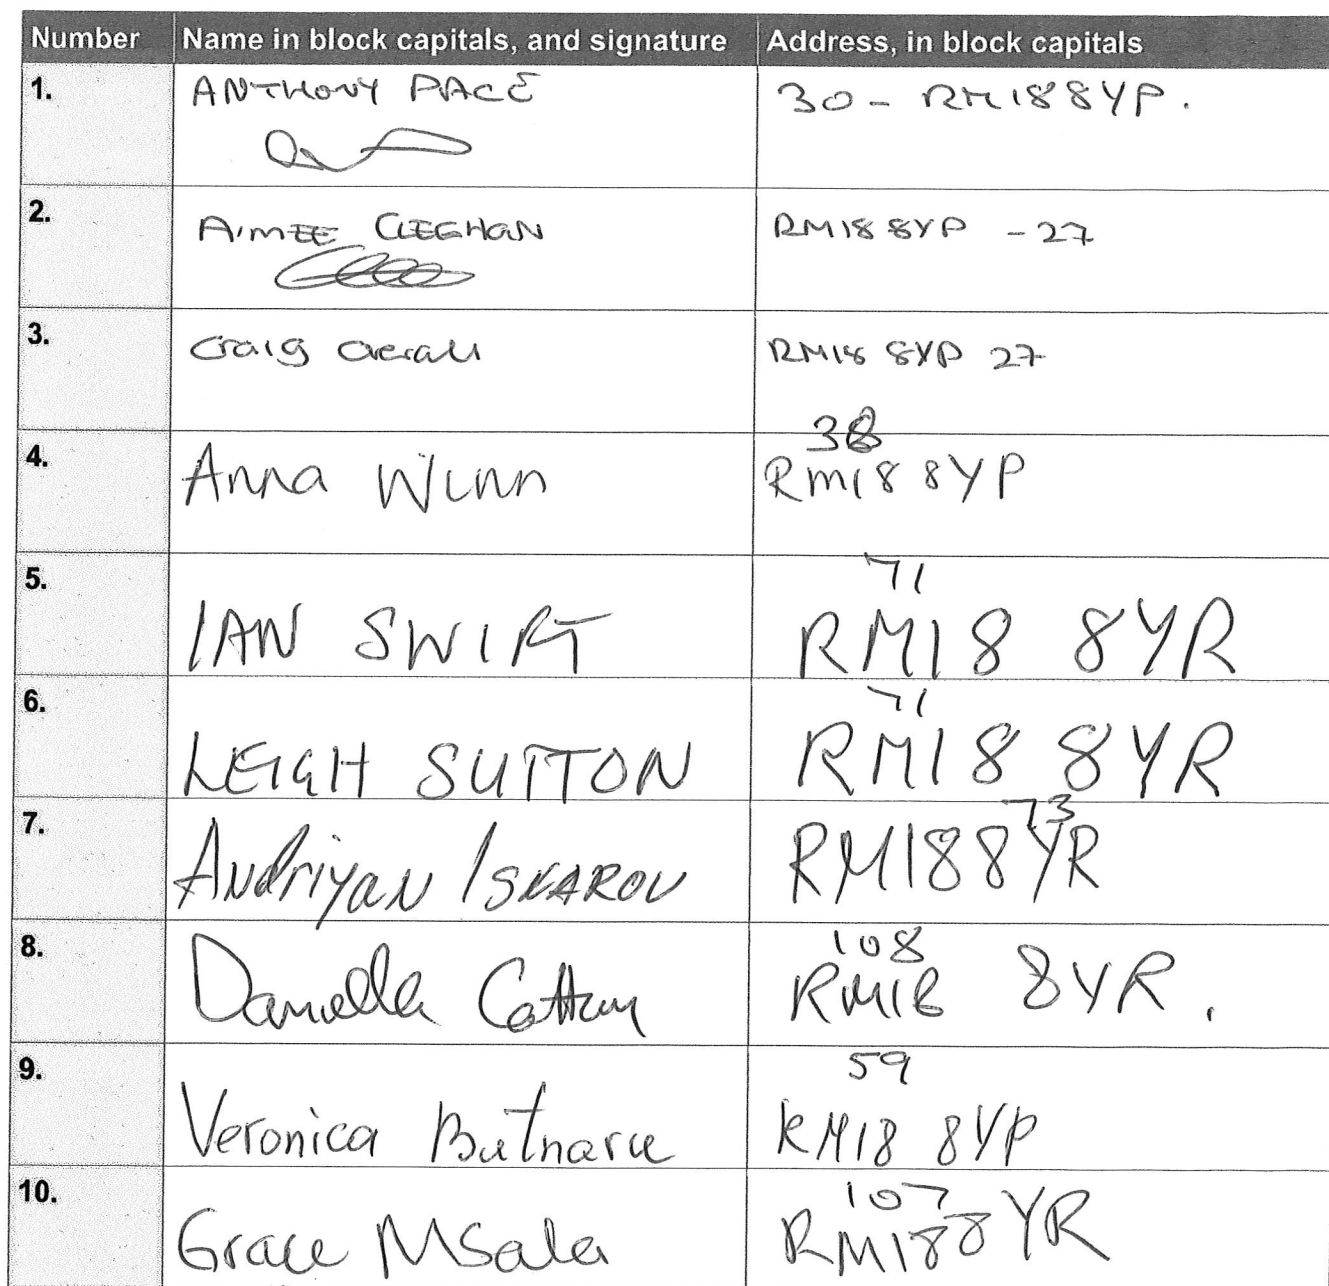 Number Name in block capitals, and signature Address, in block capitals
1. ANTHONY PACE 30 - RM188YP.
2. AIMEE CLEGHAN RM18 8YP - 27
3. Craig Overall RM18 8YP 27
38
4. Anna Wunn Rm18 8YP
5. 71
IAN SWIFT RM18 8YR
6. 71
LEIGH SUTTON RM18 8YR
7. 73
Andriyan ISKAROV RM188YR
8. 108
Danielle RM18 8YR.
9. 59
Veronica Butnaru RM18 8YP
10. 107
Grace Msala RM188YR